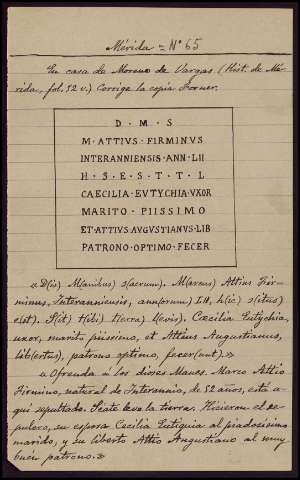 Mérida = Nº 65
En casa de Moreno de Vargas (Hist. de Mé-
rida, fol. 52 v.) Corrige la copia Forner.
D · M · S
M · ATTIVS · FIRMINVS
INTERANNIENSIS · ANN · LII
H · S · E · S · T · T · L
CAECILIA · EVTYCHIA · VXOR
MARITO · PIISSIMO
ET · ATTIVS · AVGVSTIANVS · LIB
PATRONO · OPTIMO · FECER
«D(is) M(anibus) s(acrum). M(arcus) Attius Fir-
minus, Interanniensis, ann(orum) LII, h(ic) s(itus)
e(st). S(it) t(ibi) t(erra) l(evis). Cæcilia Eutychia,
uxor, marito piissimo, et Attius Augustianus,
lib(ertus), patrono optimo, fecer(unt).»
«Ofrenda á los dioses Manes. Marco Attio
Firmino, natural de Interannio, de 52 años, está a-
quí sepultado. Séate leve la tierra. Hicieron el se-
pulcro, su esposa Cecilia Eutiquia al piadosísimo
marido, y su liberto Attio Augustiano al muy
buen patrono.»